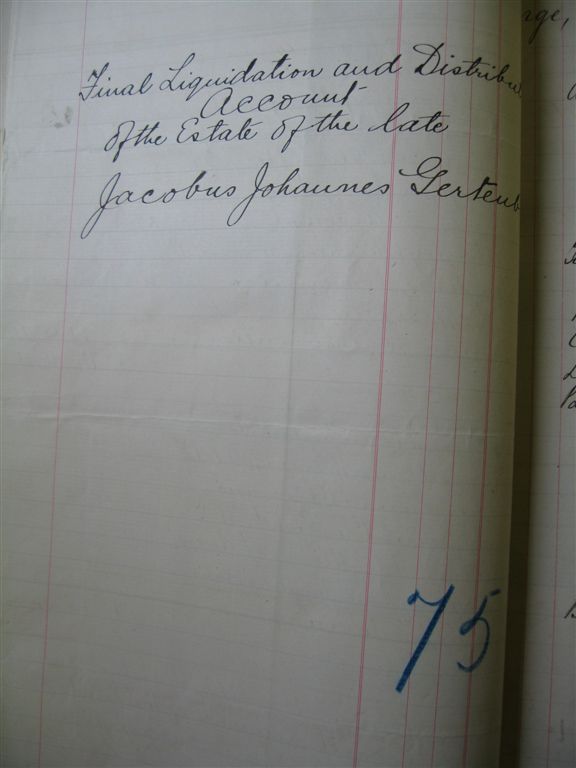 Final Liquidation and Distribu
Account
of the Estate of the late
Jacobus Johannes Gertenb
75
rge,